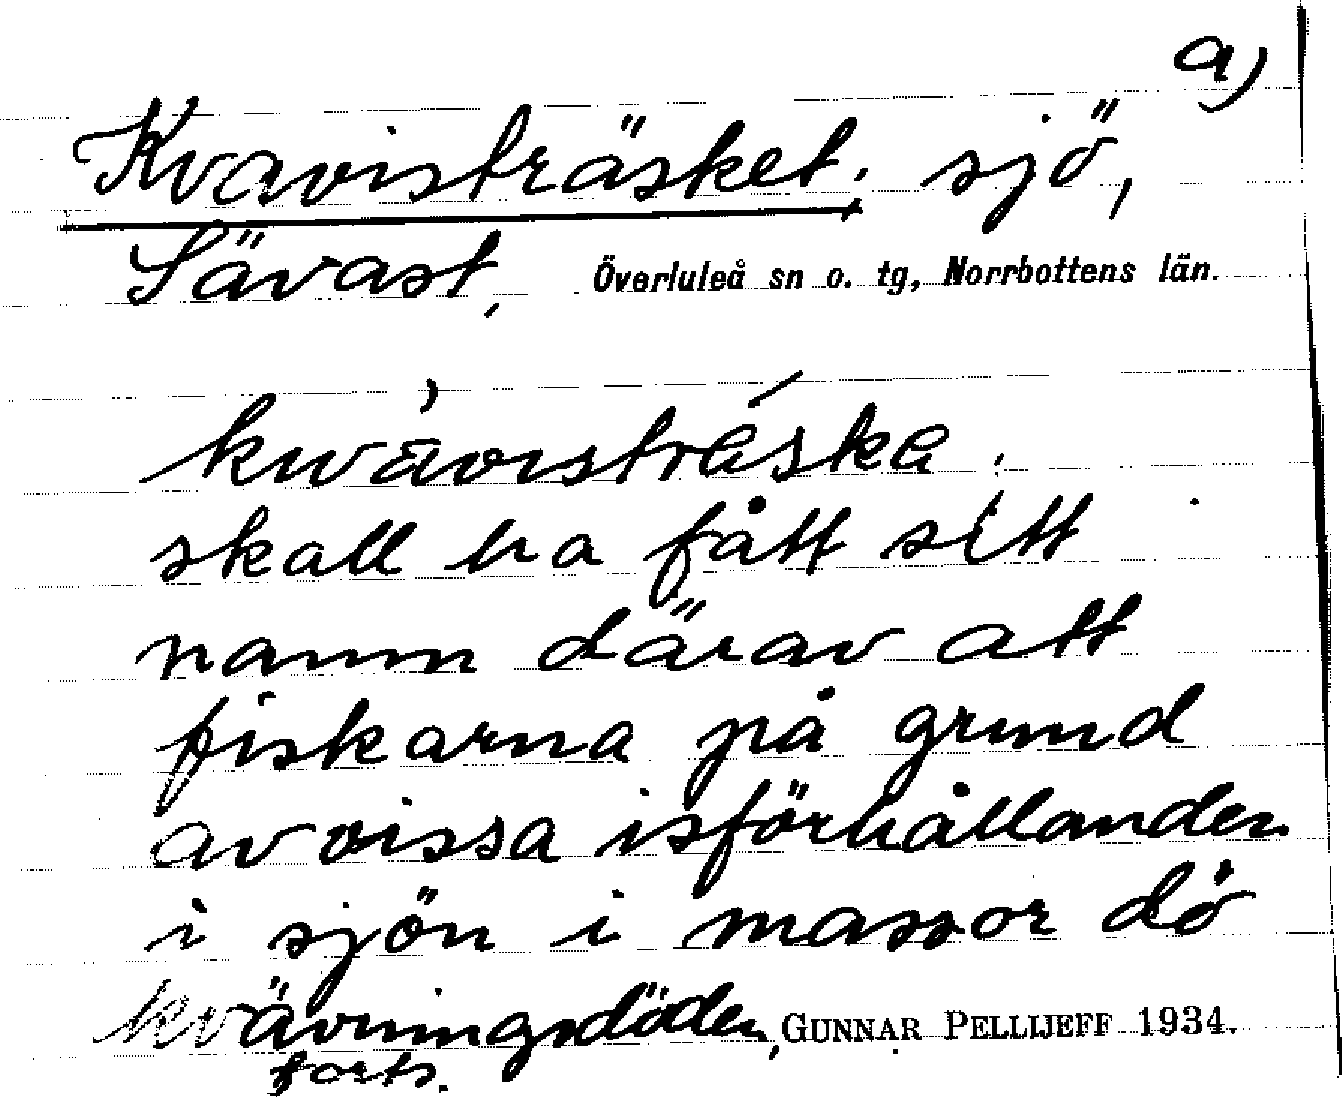 a)
Kvavisträsket; sjö,
Sävast, Överluleå sn o. tg, Norrbottens län.
kwàvıstrǻska.
skall ha fått sitt
namn därav att
fiskarna på grund
av vissa isförhållanden
i sjön i massor dö
kvävningsdöden, GUNNAR PELLIJEFF 1934.
forts.